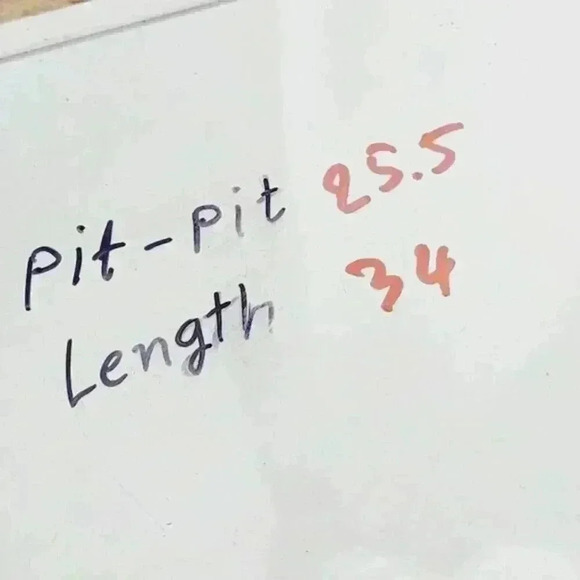 pit-pit 25.5
Length 34